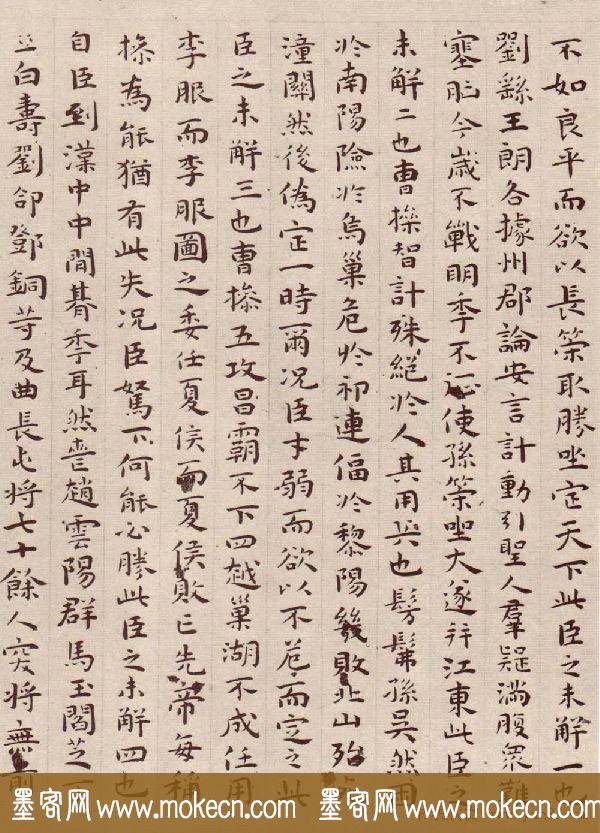 不如良平而欲以長策取勝坐定天下此臣之未解一也
劉繇王朗各據州郡論安言計動引聖人羣疑滿腹衆難
塞胸今歲不戰明季不征使孫策坐大遂并江東此臣之
未解二也曹操智計殊絕於人其用兵也髣髴孫吳然困
於南陽險於烏巢危於祁連偪於黎陽幾敗北山殆
潼關然後偽定一時爾況臣才弱而欲以不危而定之此
臣之未解三也曹操五攻昌霸不下四越巢湖不成任用
李服而李服圖之委任夏侯而夏侯敗亡先帝每稱
操為能猶有此失況臣駑下何能必勝此臣之未解四也
自臣到漢中中間朞季耳然喪趙雲陽群馬玉閻芝丁
立白壽劉郃鄧銅等及曲長屯將七十餘人突將無前
墨客网 www.mokecn.com 墨客网 www.mokecn.com